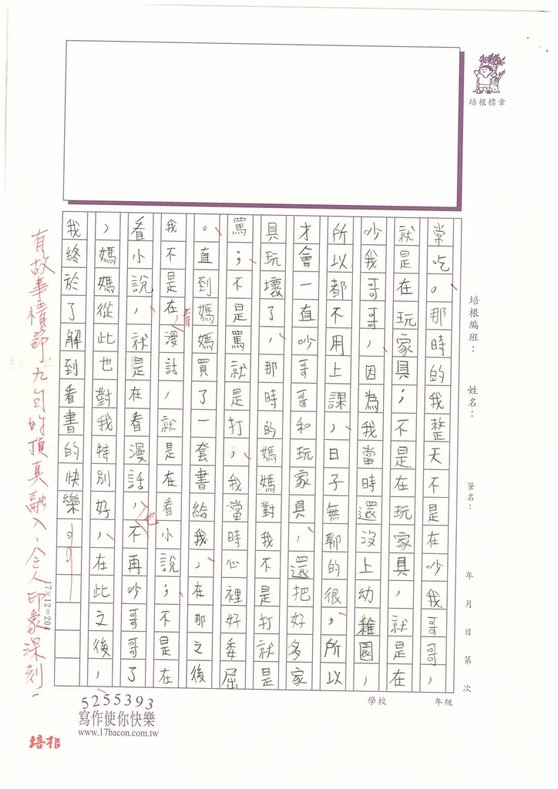 培根標章
培根編班：
姓名：
筆名：
年 月 日 第 次
學校 年級
常吃，那時的我整天不是在吵我哥哥，
就是在玩家具；不是在玩家具，就是在
吵我哥哥，因為我當時還沒上幼稚園，
所以都不用上課，日子無聊的很，所以
才會一直吵哥哥和玩家具，還把好多家
具玩壞了，那時的媽媽對我不是打就是
罵；不是罵就是打，我當時心裡好委屈
。直到媽媽買了一套書給我，在那之後
我不是在看漫話，就是在看小說；不是在
看小說，就是在看漫話，也不再吵哥哥了
，媽媽從此也對我特別好，在此之後，
我終於了解到看書的快樂
有故事情節，九句的頂真融入，令人印象深刻！
17X12=20
5255393
寫作使你快樂
www.17bacon.com.tw
培根